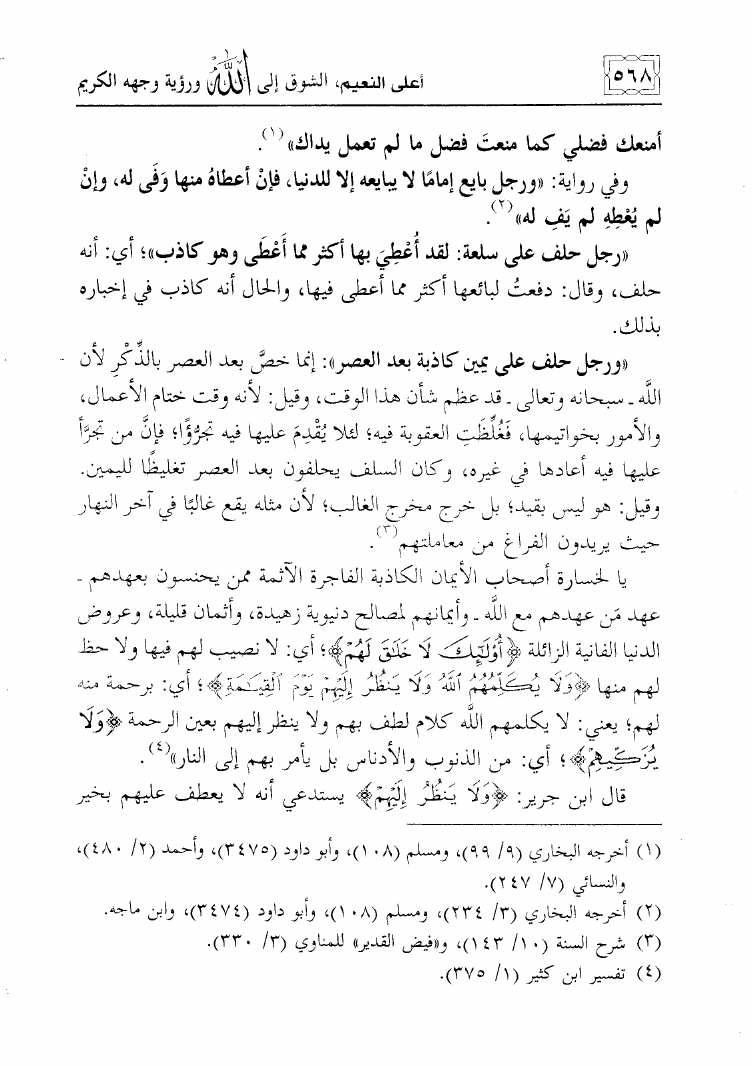 ٥٦٨
أعلى النعيم، الشوق إلى الله ورؤية وجهه الكريم
أمنعك فضلي كما منعتَ فضل ما لم تعمل يداك»(١).
وفي رواية: «ورجل بايع إمامًا لا يبايعه إلا للدنيا، فإنْ أعطاهُ منها وَفَى له، وإنْ
لم يُعْطِهِ لم يَفِ له»(٢).
«رجل حلف على سلعة: لقد أُعْطِيَ بها أكثر مما أَعْطَى وهو كاذب»؛ أي: أنه
حلف، وقال: دفعتُ لبائعها أكثر مما أعطى فيها، والحال أنه كاذب في إخباره
بذلك.
«ورجل حلف على يمين كاذبة بعد العصر»: إنما خصَّ بعد العصر بالذِّكْرِ لأن
اللَّه ـ سبحانه وتعالى ـ قد عظم شأن هذا الوقت، وقيل: لأنه وقت ختام الأعمال،
والأمور بخواتيمها، فَغُلِّظَتِ العقوبة فيه؛ لئلا يُقْدِمَ عليها فيه تجرُّؤًا؛ فإنَّ من تجرَّأ
عليها فيه أعادها في غيره، وكان السلف يحلفون بعد العصر تغليظًا لليمين.
وقيل: هو ليس بقيد؛ بل خرج مخرج الغالب؛ لأن مثله يقع غالبًا في آخر النهار
حيث يريدون الفراغ من معاملتهم(٣).
يا لخسارة أصحاب الأيمان الكاذبة الفاجرة الآثمة ممن يحنسون بعهدهم ـ
عهد مَن عهدهم مع اللَّه ـ وأيمانهم لمصالح دنيوية زهيدة، وأثمان قليلة، وعروض
الدنيا الفانية الزائلة ﴿أُوْلَٰٓئِكَ لَا خَلَٰقَ لَهُمْ﴾؛ أي: لا نصيب لهم فيها ولا حظ
لهم منها ﴿وَلَا يُكَلِّمُهُمُ ٱللَّهُ وَلَا يَنظُرُ إِلَيْهِمْ يَوْمَ ٱلْقِيَٰمَةِ﴾؛ أي: برحمة منه
لهم؛ يعني: لا يكلمهم اللَّه كلام لطف بهم ولا ينظر إليهم بعين الرحمة ﴿وَلَا
يُزَكِّيهِمْ﴾؛ أي: من الذنوب والأدناس بل يأمر بهم إلى النار»(٤).
قال ابن جرير: ﴿وَلَا يَنظُرُ إِلَيْهِمْ﴾ يستدعي أنه لا يعطف عليهم بخير
(١) أخرجه البخاري (٩/ ٩٩)، ومسلم (١٠٨)، وأبو داود (٣٤٧٥)، وأحمد (٢/ ٤٨٠)،
والنسائي (٧/ ٢٤٧).
(٢) أخرجه البخاري (٣/ ٢٣٤)، ومسلم (١٠٨)، وأبو داود (٣٤٧٤)، وابن ماجه.
(٣) شرح السنة (١٠/ ١٤٣)، و«فيض القدير» للمناوي (٣/ ٣٣٠).
(٤) تفسير ابن كثير (١/ ٣٧٥).